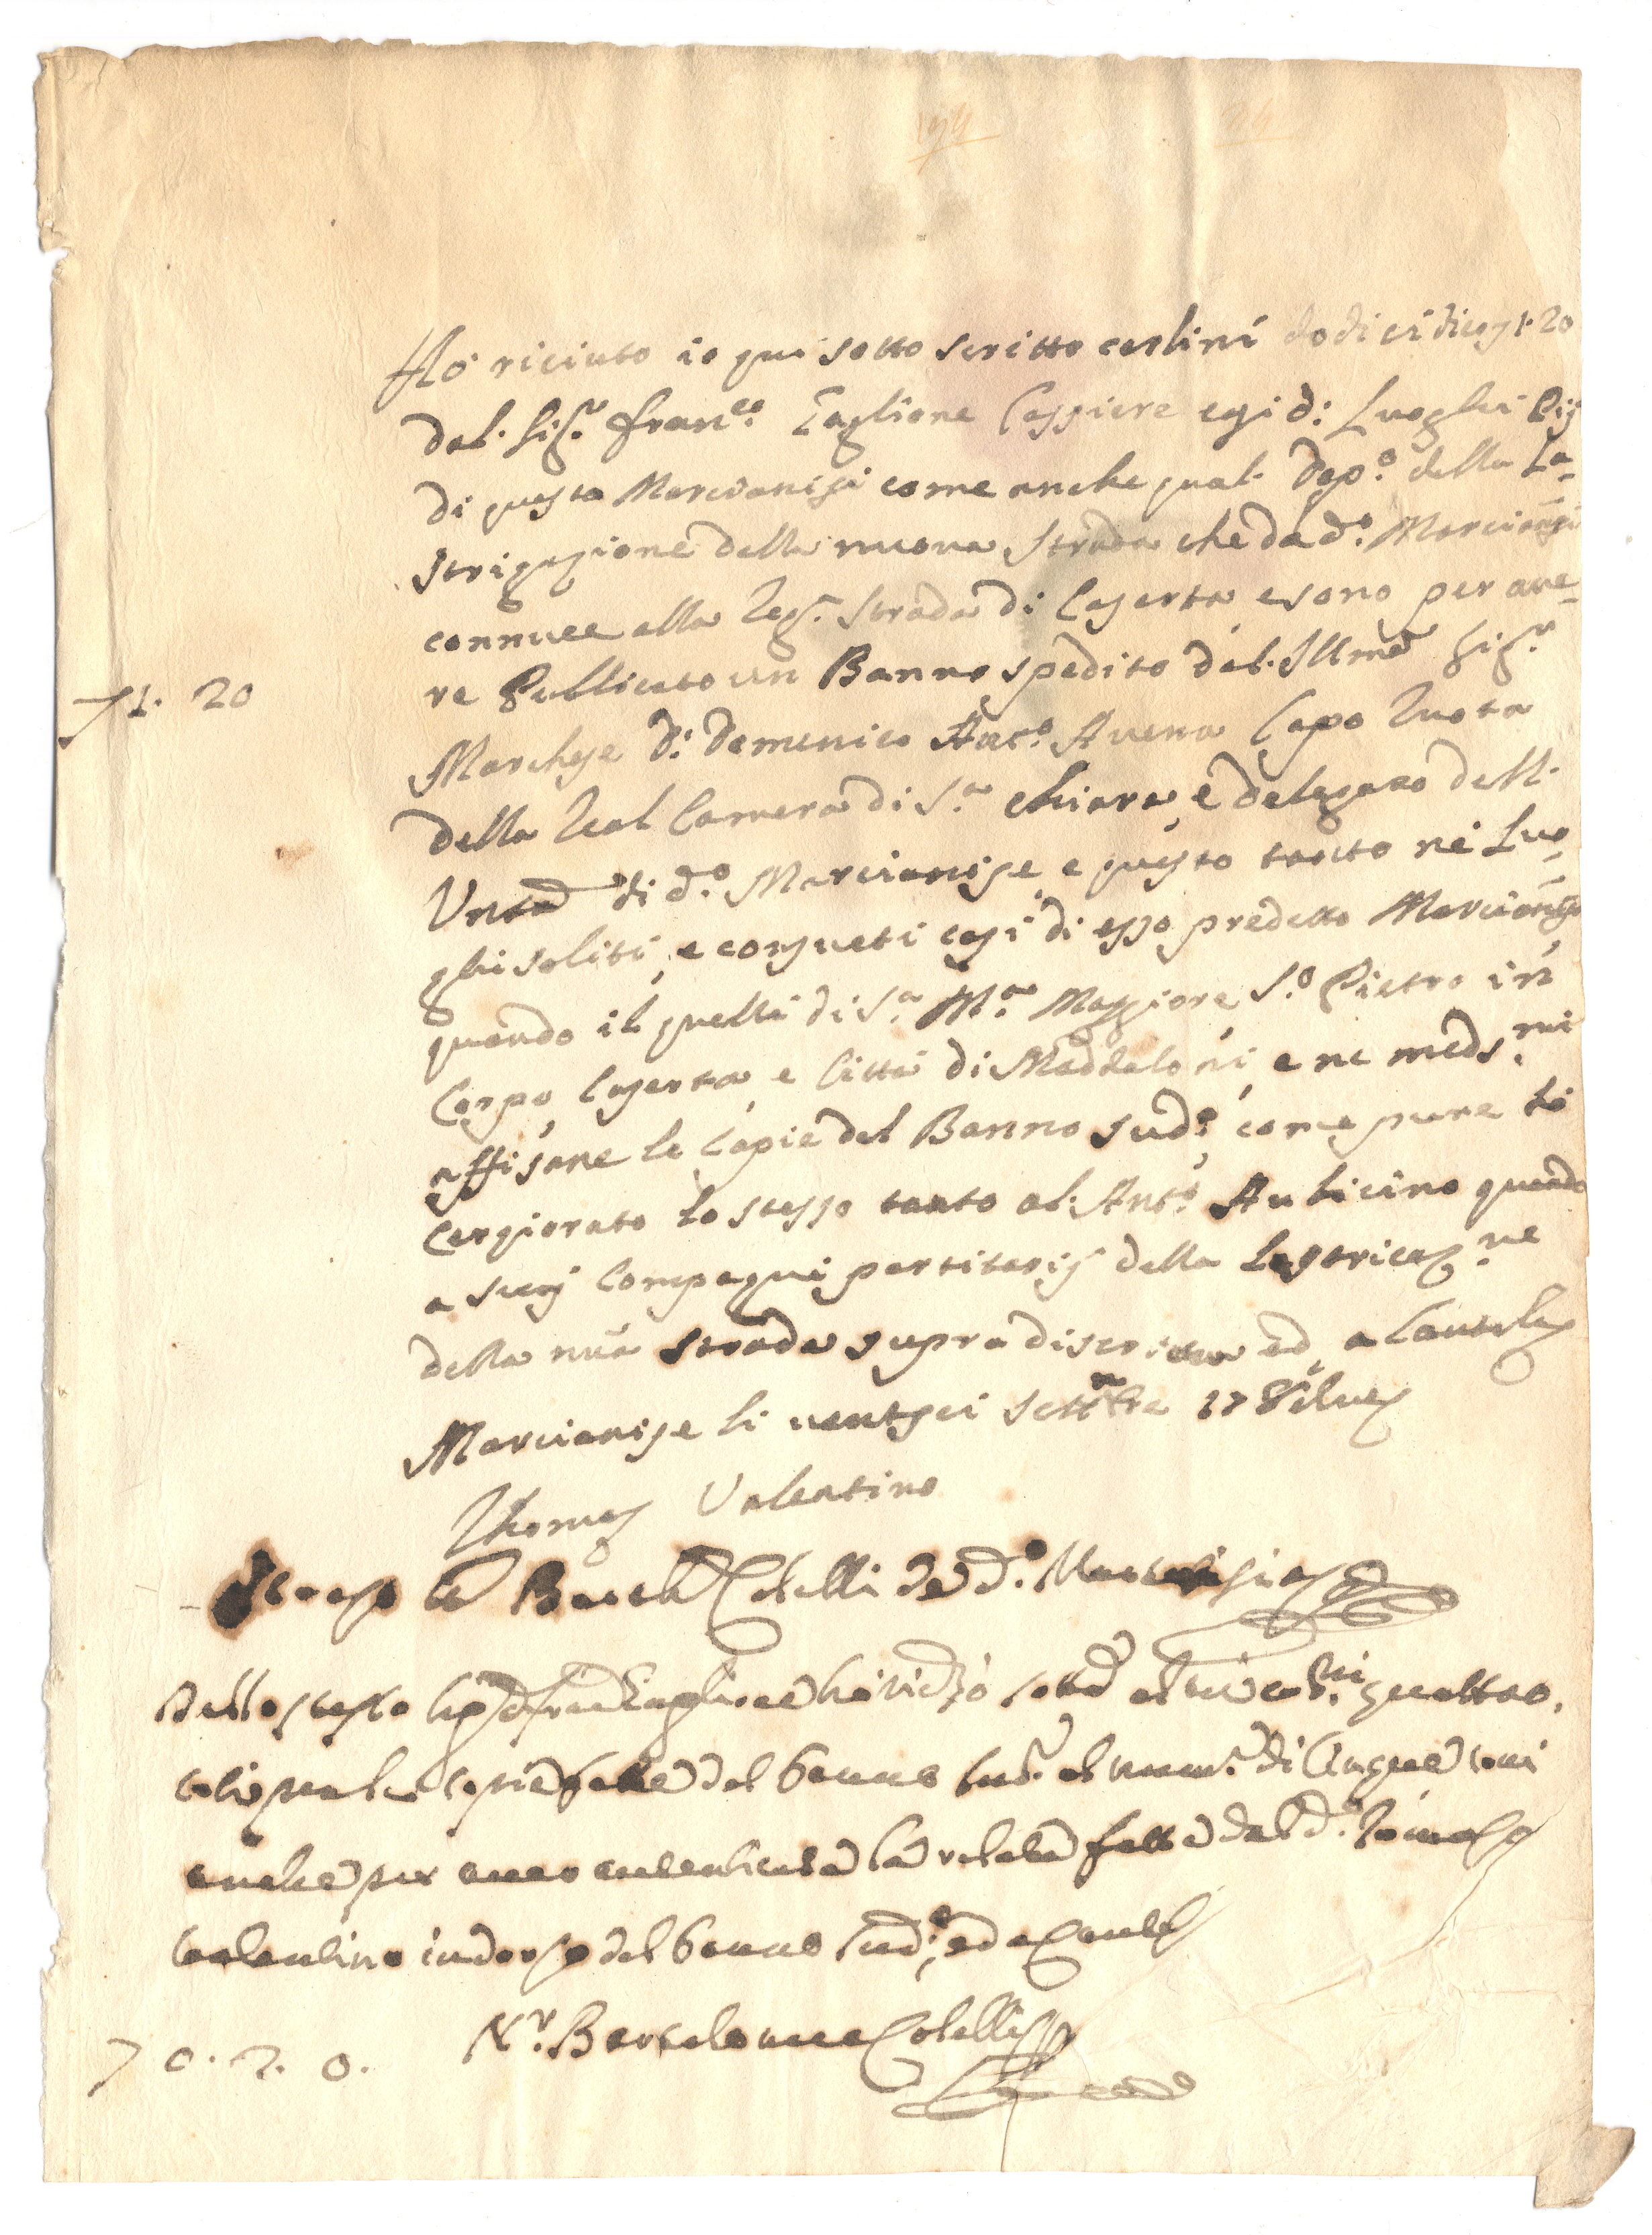 Hò riciuto io qui sotto scritto carlini dodici dico 1.20
dal. Sig.r Fran.co Taglione Cassiere egi di: Luoghi Pij
di questa Marcianisi come anche qual. Dep.o della La-
strigazione della nuova strada che da d.o Marcianisi
connuce alla Reg.a Strada di Caserta, e sono per ave-
re Publicato un Banno spedito dal. Illmo Sig.r
71. 20
Marchese D: Domenico Ant.o Avena Capo Ruota
della Real Camera di S.a Chiara, e Delegato dell.
Untà di d.o Marcianise, e questo tanto ne Luo-
ghi soliti, e consueti così di esso predetto Marcianise
quando il quelli di S.a M.a Maggiore, S.o Pietro in
Corpo, Caserta, e Città di Maddaloni, e ne meds.mi
affisane le Copie del Banno sud.o, come pure lo
Cerziorato lo stesso tanto al. Ant.o Aulicino quando
a suoj Compagni partitarij della Lastricaz.ne
della nuã strada supra discritta ed a Cautela
Marcianise li ventisei settbre 17
Thomas Valentino
Barth Colelli de d.o
Dallo stesso Sig.r D. Fran Taglione hò ric altri carni quattro,
per le copie fatte del banno sud.o al num.o di Cinque
anche per avere autenticata la relata fatta dal d.o Tomaso
Valentino in dorso del banno sud.o, ed a Cautela
N.r Bartolomeo Colelli
7 0. 2. 0.